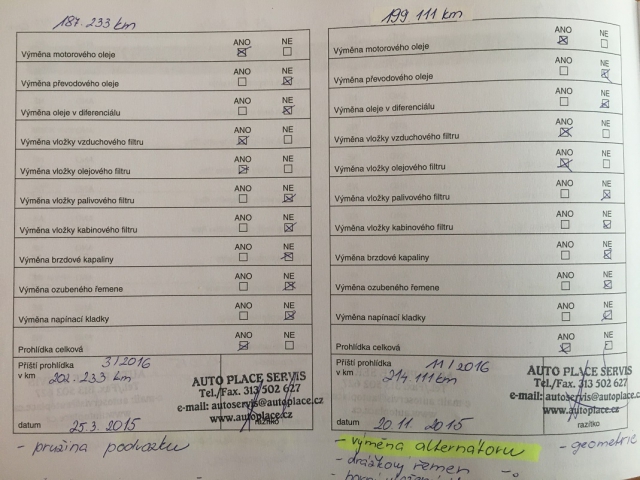 187.233 km
ANO NE
Výměna motorového oleje
ANO NE
Výměna převodového oleje
ANO NE
Výměna oleje v diferenciálu
ANO NE
Výměna vložky vzduchového filtru
ANO NE
Výměna vložky olejového filtru
ANO NE
Výměna vložky palivového filtru
ANO NE
Výměna vložky kabinového filtru
ANO NE
Výměna brzdové kapaliny
ANO NE
Výměna ozubeného řemene
ANO NE
Výměna napínací kladky
ANO NE
Prohlídka celková
Příští prohlídka 3/2016
v km 202.233 km
AUTO PLACE SERVIS
Tel./Fax. 313 502 627
e-mail: autoservis@autoplace.cz
www.autoplace.cz
datum 25.3.2015 razítko
- pružina podvozku
199 111 km
ANO NE
Výměna motorového oleje
ANO NE
Výměna převodového oleje
ANO NE
Výměna oleje v diferenciálu
ANO NE
Výměna vložky vzduchového filtru
ANO NE
Výměna vložky olejového filtru
ANO NE
Výměna vložky palivového filtru
ANO NE
Výměna vložky kabinového filtru
ANO NE
Výměna brzdové kapaliny
ANO NE
Výměna ozubeného řemene
ANO NE
Výměna napínací kladky
ANO NE
Prohlídka celková
Příští prohlídka 11/2016
v km 214 111km
AUTO PLACE SERVIS
Tel./Fax. 313 502 627
e-mail: autoservis@autoplace.cz
www.autoplace.cz
datum 20.11.2015 razítko
- výměna alternátoru - geometrie
- drážkový řemen